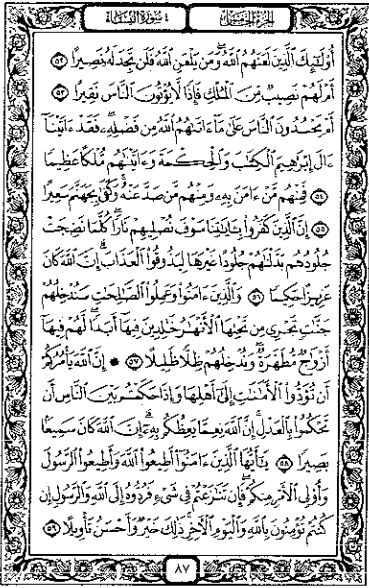 الجزء الخامس ٤ سورة النساء
أُوْلَٰٓئِكَ ٱلَّذِينَ لَعَنَهُمُ ٱللَّهُۖ وَمَن يَلْعَنِ ٱللَّهُ فَلَن تَجِدَ لَهُۥ نَصِيرًا ٥٢
أَمْ لَهُمْ نَصِيبٌ مِّنَ ٱلْمُلْكِ فَإِذًا لَّا يُؤْتُونَ ٱلنَّاسَ نَقِيرًا ٥٣
أَمْ يَحْسُدُونَ ٱلنَّاسَ عَلَىٰ مَآ ءَاتَىٰهُمُ ٱللَّهُ مِن فَضْلِهِۦۖ فَقَدْ ءَاتَيْنَآ
ءَالَ إِبْرَٰهِيمَ ٱلْكِتَٰبَ وَٱلْحِكْمَةَ وَءَاتَيْنَٰهُم مُّلْكًا عَظِيمًا
٥٤ فَمِنْهُم مَّنْ ءَامَنَ بِهِۦ وَمِنْهُم مَّن صَدَّ عَنْهُۚ وَكَفَىٰ بِجَهَنَّمَ سَعِيرًا
٥٥ إِنَّ ٱلَّذِينَ كَفَرُواْ بِـَٔايَٰتِنَا سَوْفَ نُصْلِيهِمْ نَارًا كُلَّمَا نَضِجَتْ
جُلُودُهُم بَدَّلْنَٰهُمْ جُلُودًا غَيْرَهَا لِيَذُوقُواْ ٱلْعَذَابَۗ إِنَّ ٱللَّهَ كَانَ
عَزِيزًا حَكِيمًا ٥٦ وَٱلَّذِينَ ءَامَنُواْ وَعَمِلُواْ ٱلصَّٰلِحَٰتِ سَنُدْخِلُهُمْ
جَنَّٰتٍ تَجْرِى مِن تَحْتِهَا ٱلْأَنْهَٰرُ خَٰلِدِينَ فِيهَآ أَبَدًاۖ لَّهُمْ فِيهَآ
أَزْوَٰجٌ مُّطَهَّرَةٌۖ وَنُدْخِلُهُمْ ظِلًّا ظَلِيلًا ٥٧ ۞ إِنَّ ٱللَّهَ يَأْمُرُكُمْ
أَن تُؤَدُّواْ ٱلْأَمَٰنَٰتِ إِلَىٰٓ أَهْلِهَا وَإِذَا حَكَمْتُم بَيْنَ ٱلنَّاسِ أَن
تَحْكُمُواْ بِٱلْعَدْلِۚ إِنَّ ٱللَّهَ نِعِمَّا يَعِظُكُم بِهِۦٓۗ إِنَّ ٱللَّهَ كَانَ سَمِيعًۢا
بَصِيرًا ٥٨ يَٰٓأَيُّهَا ٱلَّذِينَ ءَامَنُوٓاْ أَطِيعُواْ ٱللَّهَ وَأَطِيعُواْ ٱلرَّسُولَ
وَأُوْلِى ٱلْأَمْرِ مِنكُمْۖ فَإِن تَنَٰزَعْتُمْ فِى شَىْءٍ فَرُدُّوهُ إِلَى ٱللَّهِ وَٱلرَّسُولِ إِن
كُنتُمْ تُؤْمِنُونَ بِٱللَّهِ وَٱلْيَوْمِ ٱلْأٓخِرِۚ ذَٰلِكَ خَيْرٌ وَأَحْسَنُ تَأْوِيلًا ٥٩
٨٧